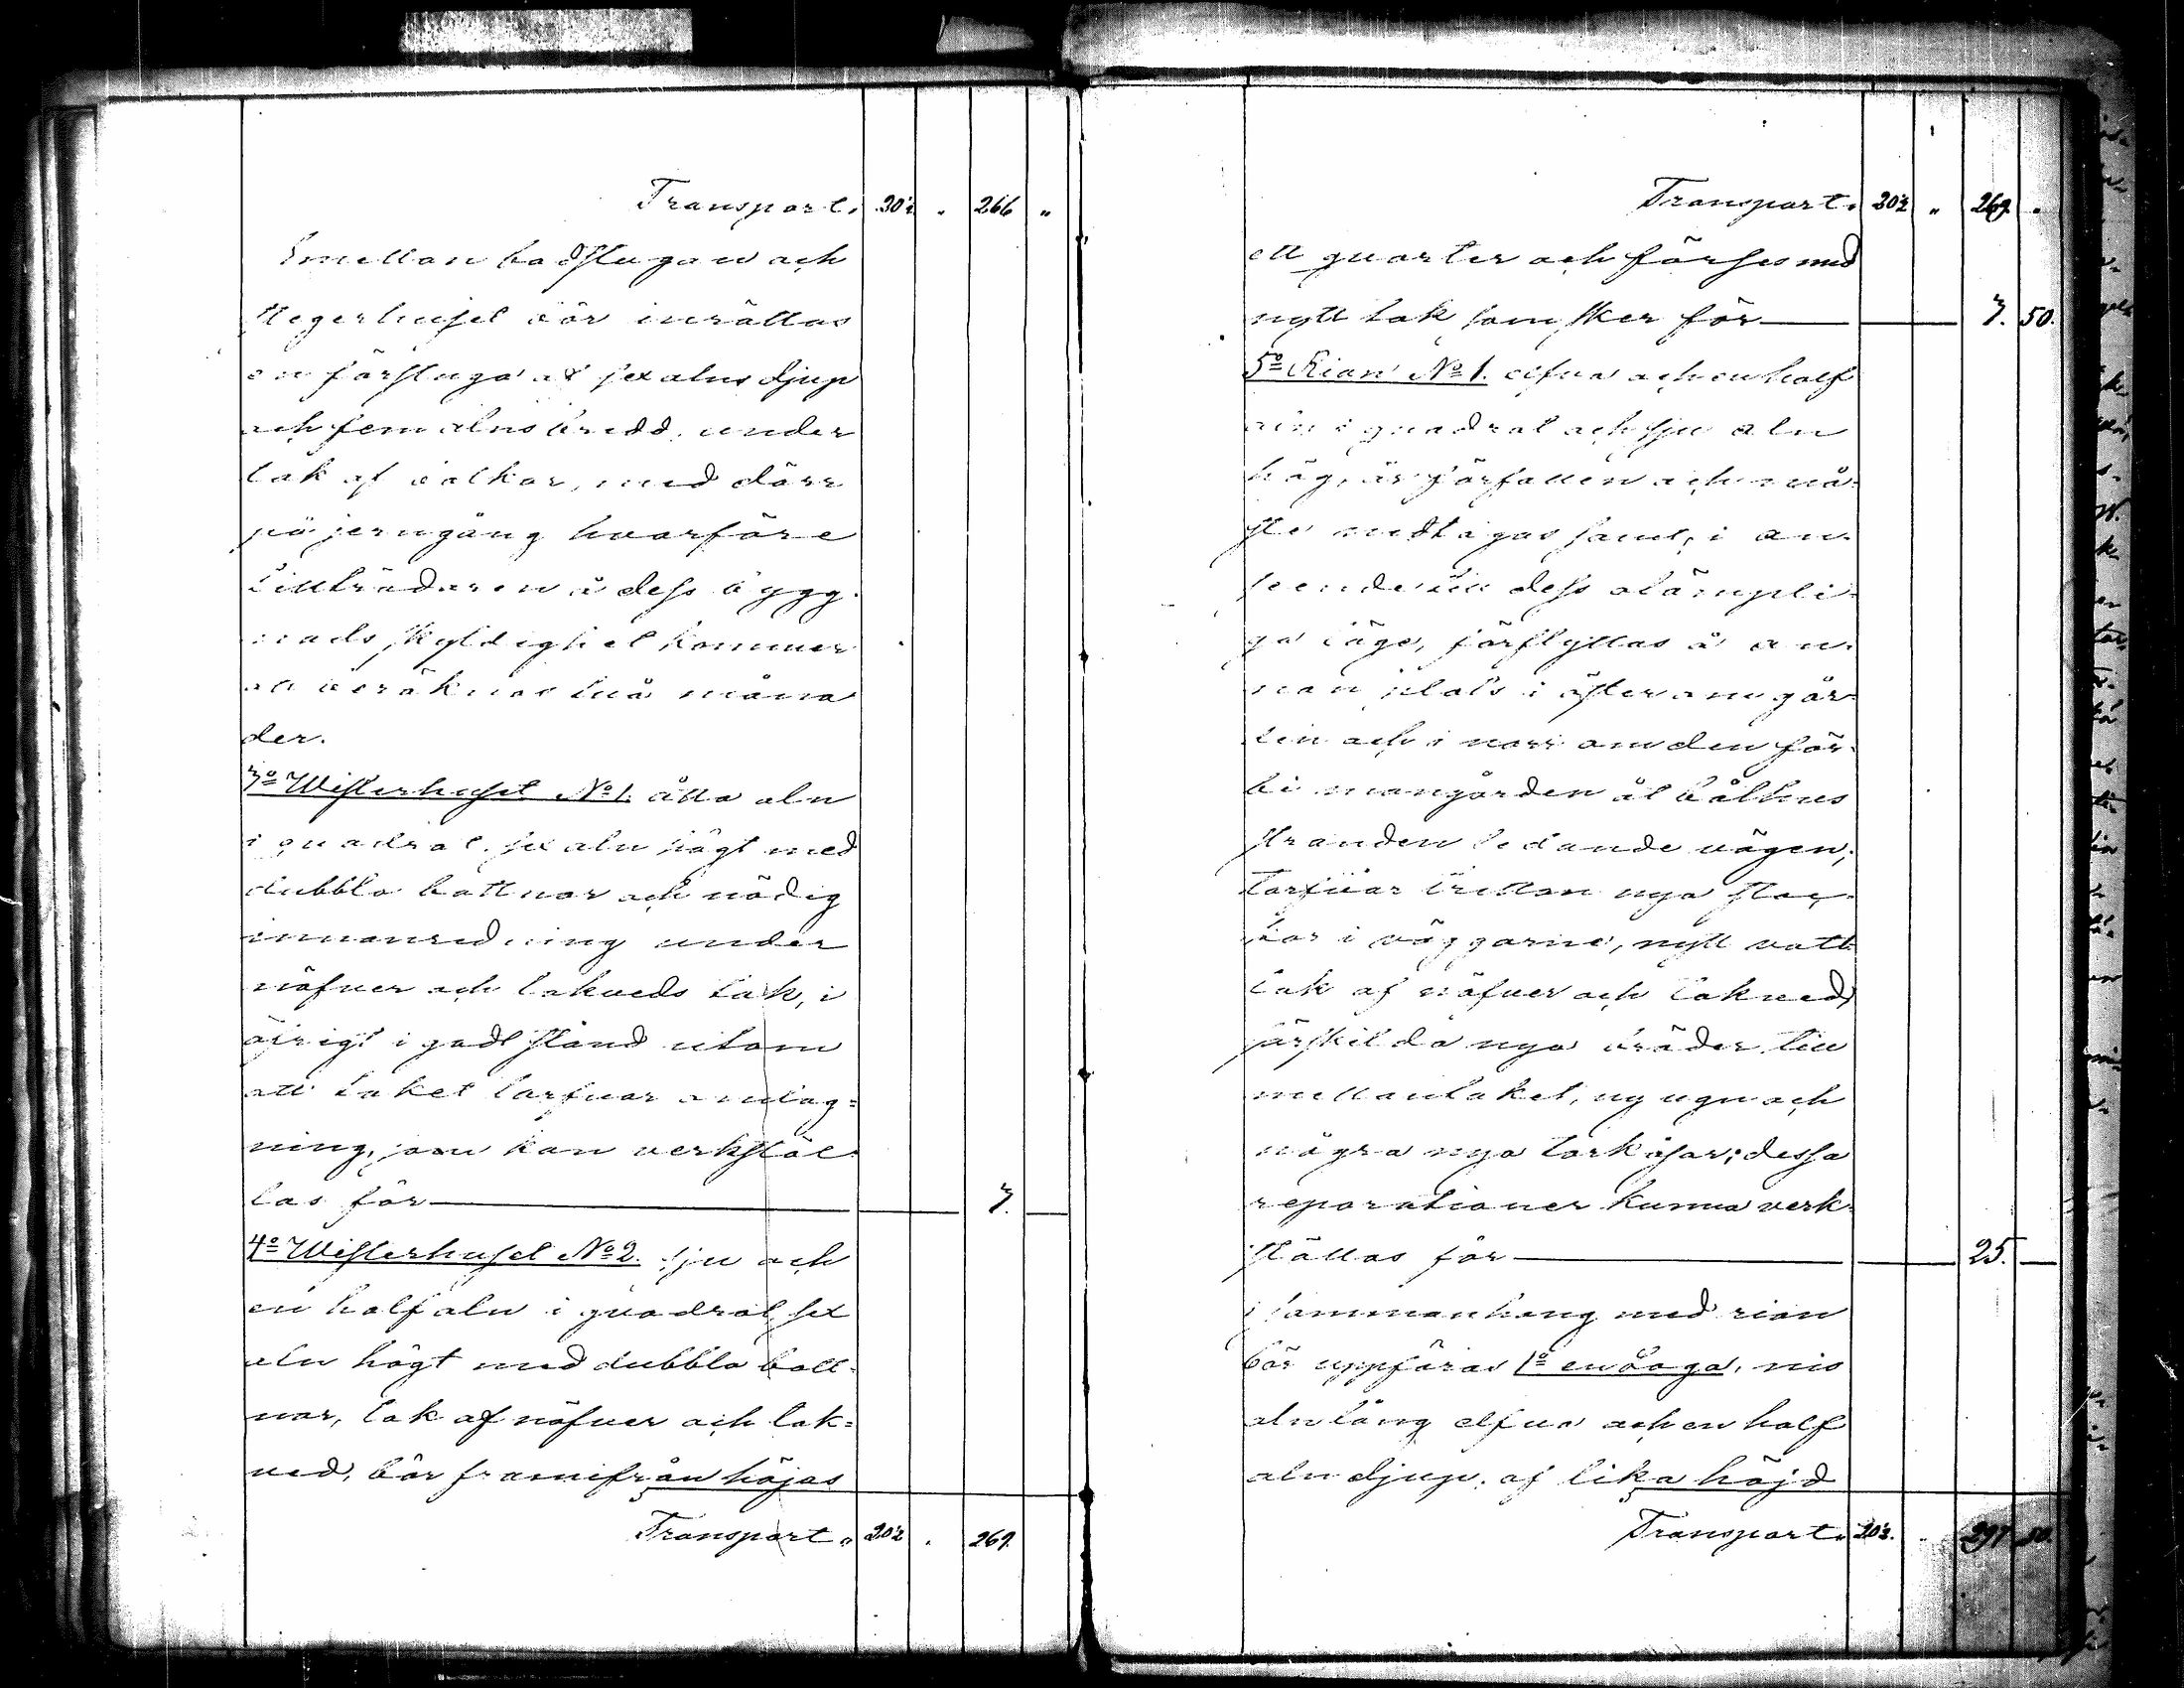 Transport. 20½ " 266 "
Emellan badstugan och
Stegerhuset bör inrättas
en förstuga af sex alns djup
och fem alns bredd, under
tak af balkar, med dörr
på jerngång hvarföre
Tillträdaren å dess bygg-
nads skyldighet kommer
att beräknas två måna
der.
3o Wisterhuset No 1. åtta aln
i quadrat, sex aln högt med
dubbla bottnar och nödig
innanredning under
näfver och takveds tak, i
öfrigt i godt stånd utom
att taket tarfvar omlag=
ning, som kan verkstäl-
las för 3.
4o Wisterhuset No 2. sju och
en half aln i quadrat sex
aln högt med dubbla bott-
nar, tak af näfver och tak=
ved, bör framifrån höjas
Transport. 20½ . 269.
Transport. 20½ " 269. "
ett quarter och förses med
nytt tak som sker för 3. 50.
5o Rian No 1. elfva och en half
aln i quadrat och sju aln
hög, är förfallen och må-
ste nedtagas samt, i an-
seende till dess olämpli-
ga läge, förflyttas å an-
nan plats i öster om går-
den och i norr om den för-
bi mangården åt båthus
stranden ledande vägen;
Tarfvar tretton nya stoc-
kar i väggarne, nytt vatt
tak af näfver och takved,
särskilda nya bräder till
mellantaket, ny ugn och
några nya torkåsar; dessa
reparationer kunna verk-
ställas för 25.
i sammanhang med rian
bör uppföras 1o en Loga, nio
aln lång elfva och en half
aln djup, af lika höjd
Transport. 20½. . 297 50.